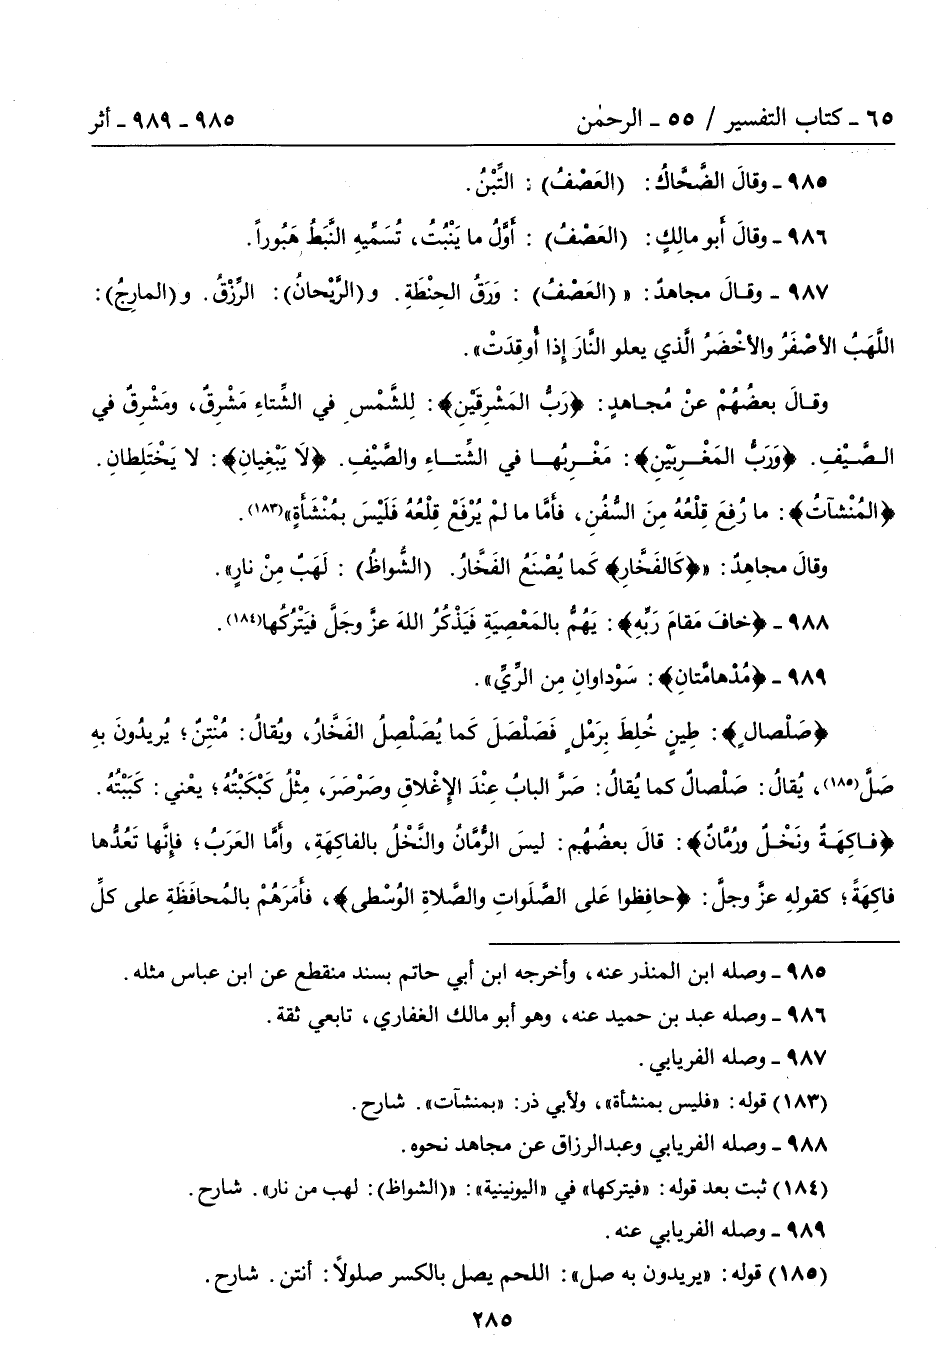 ٦٥ ـ كتاب التفسير / ٥٥ ـ الرحمٰن ٩٨٥ ـ ٩٨٩ ـ أثر
٩٨٥ ـ وقالَ الضَّحَّاكُ: (العَصْفُ) : التِّبْنُ.
٩٨٦ ـ وقالَ أَبو مالِكٍ: (العَصْفُ) : أَوَّلُ ما يَنْبُتُ، تُسَمِّيهِ النَّبَطُ هَبُوراً.
٩٨٧ ـ وقالَ مجاهدٌ: « (العَصْفُ) : وَرَقُ الحِنْطَةِ. و(الرَّيْحانُ): الرِّزْقُ. و(المارِجُ):
اللَّهَبُ الأصْفَرُ والأخْضَرُ الَّذي يعلو النَّارَ إذا أُوقِدَتْ».
وقالَ بعضُهُمْ عنْ مُجاهدٍ: ﴿رَبُّ المَشْرِقَيْنِ﴾: لِلشَّمْسِ في الشِّتاءِ مَشْرِقٌ، ومَشْرِقٌ في
الصَّيْفِ. ﴿وَرَبُّ المَغْرِبَيْنِ﴾: مَغْرِبُها في الشِّتاءِ والصَّيْفِ. ﴿لَا يَبْغِيانِ﴾: لا يَخْتَلِطانِ.
﴿المُنْشآتُ﴾: ما رُفِعَ قِلْعُهُ مِنَ السُّفُنِ، فأمَّا ما لمْ يُرْفَعْ قِلْعُهُ فَلَيْسَ بمُنْشَأَةٍ»(١٨٣).
وقالَ مجاهِدٌ: «﴿كَالفَخَّارِ﴾ كَما يُصْنَعُ الفَخَّارُ. (الشُّواظُ) : لَهَبٌ مِنْ نارٍ».
٩٨٨ ـ ﴿خافَ مَقامَ رَبِّهِ﴾: يَهُمُّ بالمَعْصِيَةِ فَيَذْكُرُ اللهَ عزَّ وجَلَّ فيَتْرُكُها(١٨٤).
٩٨٩ ـ ﴿مُدْهامَّتانِ﴾: سَوْداوانِ مِن الرِّيِّ».
﴿صَلْصالٍ﴾: طِينٍ خُلِطَ بِرَمْلٍ فَصَلْصَلَ كَما يُصَلْصِلُ الفَخَّارُ، ويُقالُ: مُنْتِنٌ؛ يُريدُونَ بهِ
صَلَّ(١٨٥)، يُقالُ: صَلْصالٌ كما يُقالُ: صَرَّ البابُ عِنْدَ الإغْلاقِ وصَرْصَرَ، مِثْلُ كَبْكَبْتُهُ؛ يعْني: كَبَبْتُهُ.
﴿فاكِهَةٌ ونَخْلٌ ورُمَّانٌ﴾: قالَ بعضُهُم: ليسَ الرُّمَّانُ والنَّخْلُ بالفاكِهَةِ، وأمَّا العَرَبُ؛ فإنَّها تَعُدُّها
فاكِهَةً؛ كقولِهِ عزَّ وجلَّ: ﴿حافِظوا عَلى الصَّلَواتِ والصَّلاةِ الوُسْطى﴾، فأمَرَهُمْ بالمُحافَظَةِ على كلِّ
٩٨٥ ـ وصله ابن المنذر عنه، وأخرجه ابن أبي حاتم بسند منقطع عن ابن عباس مثله.
٩٨٦ ـ وصله عبد بن حميد عنه، وهو أبو مالك الغفاري، تابعي ثقة.
٩٨٧ ـ وصله الفريابي.
(١٨٣) قوله: «فليس بمنشأة»، ولأبي ذر: «بمنشآت». شارح.
٩٨٨ ـ وصله الفريابي وعبدالرزاق عن مجاهد نحوه.
(١٨٤) ثبت بعد قوله: «فيتركها» في «اليونينية»: «(الشواظ): لهب من نار». شارح.
٩٨٩ ـ وصله الفريابي عنه.
(١٨٥) قوله: «يريدون به صل»: اللحم يصل بالكسر صلولاً: أنتن. شارح.
٢٨٥